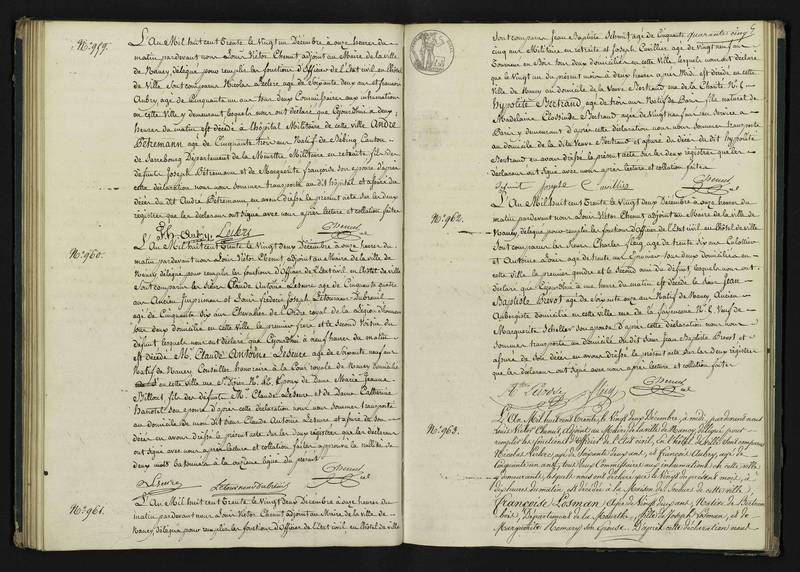 N.º 959.
L'An Mil huit cent Trente le Vingt un Décembre à onze heures du
matin pardevant nous Louis Victor Chenut adjoint au Maire de la ville
de Nancy délégué pour remplir les fonctions d'Officier de l'Etat civil en l'hôtel
de Ville sont comparus Nicolas Leclerc agé de soixante deux ans et françois
Aubry agé de Cinquante un ans tous deux Commissaires aux inhumations
en cette Ville y demeurant lesquels nous ont déclaré que
heures du matin est décédé à l'hôpital Militaire de cette ville André
Bettemann agé de Cinquante trois ans Natif de Canton
de Sarrebourg Département de la Meurthe Militaire en retraite fils des
défunts Joseph Bettemann et de Marguerite françoise son épouse d'après
cette déclaration nous nous sommes transporté au dit hôpital et assuré du
décès du dit André Bettemann, en avons dressé le présent acte sur les deux
registres que les déclarants ont signé avec nous après lecture et collation faites
Aubry Leclerc Chenut
N.º 960.
L'An Mil huit cent Trente le Vingt deux Décembre à onze heures du
matin pardevant nous Louis Victor Chenut adjoint au Maire de la ville de
Nancy délégué pour remplir les fonctions d'Officier de l'Etat civil en l'hôtel de ville
sont comparus les sieurs Claude Antoine Lesure agé de Cinquante quatre
ans Ancien Imprimeur et Louis frédéric Joseph Letourneau Dubreuil
agé de Cinquante six ans Chevalier de l'Ordre royal de la Légion d'honneur
tous deux domiciliés en cette ville le premier frère et le second Voisin du
défunt lesquels nous ont déclaré que Cejourd'hui à neuf heures du matin
est décédé M. Claude Antoine Lesure agé de Soixante neuf ans
Natif de Nancy Conseiller honoraire à la Cour royale de Nancy domicilié
en cette ville rue N.º 42. Epoux de Dame Marie Jeanne
fils des défunts M. Claude Lesure et de Dame Catherine
son épouse d'après cette déclaration nous nous sommes transporté
au domicile du dit Sieur Claude Antoine Lesure et assuré de son
décès en avons dressé le présent acte sur les deux registres que les déclarants
ont signé avec nous après lecture et collation faites approuvé la nullité de
deux mots batonnés à la onzième ligne du présent.
Lesure Letourneau Dubreuil Chenut
N.º 961.
L'An Mil huit cent Trente le Vingt deux Décembre à onze heures du
matin pardevant nous Louis Victor Chenut adjoint au Maire de la ville de
Nancy délégué pour remplir les fonctions d'Officier de l'Etat civil, en l'hôtel de ville
sont comparus Jean Baptiste Schmit agé de Cinquante quarante cinq
cinq ans Militaire en retraite et Joseph Cuvillier agé de Vingt neuf ans
Tourneur en bois tous deux domiciliés en cette Ville, lesquels nous ont déclaré
que le Vingt un du présent mois à deux heures après Midi est décédé en cette
Ville de Nancy au domicile de la Veuve Bertrand rue de la Charité N.º
hypolite Bertrand agé de trois ans Natif de Paris, fils naturel de
Madelaine Clossinde Bertrand agée de Vingt neuf ans ouvrière à
Paris y demeurant d'après cette déclaration nous nous sommes transporté
au domicile de la dite Veuve Bertrand et assuré du décès du dit hypolite
Bertrand en avons dressé le présent acte sur les deux registres que les
déclarants ont signé avec nous après lecture et collation faites
Schmit Joseph Cuvillier Chenut
N.º 962.
L'An Mil huit cent Trente le Vingt deux Décembre à onze heures du
matin pardevant nous Louis Victor Chenut adjoint au Maire de la ville de
Nancy, délégué pour remplir les fonctions d'Officier de l'Etat civil en l'hôtel de ville
sont comparus les sieurs Charles agé de trente six ans
et Antoine agé de trente un ans tous deux domiciliés en
cette ville le premier gendre et le second ami du défunt lesquels nous ont
déclaré que Cejourd'hui à une heure du matin est décédé le Sieur Jean
Baptiste Prevot agé de soixante onze ans Natif de Nancy, Ancien
Aubergiste domicilié en cette ville rue de la fayencerie N.º 6. Veuf de
Marguerite son épouse d'après cette déclaration nous nous
sommes transporté au domicile du dit Sieur Jean Baptiste Prevot et
assuré de son décès en avons dressé le présent acte sur les deux registres
que les déclarants ont signé avec nous après lecture et collation faites
Chenut
N.º 963.
L'An Mil huit cent Trente, le Vingt deux Décembre, à midi, pardevant nous
Louis Victor Chenut, Adjoint au Maire de la Ville de Nancy, délégué pour
remplir les fonctions d'Officier de l'Etat civil, en l'hôtel de Ville, sont comparus
Nicolas Leclerc, agé de Soixante deux ans, et françois Aubry, agé de
Cinquante un ans, tous deux Commissaires aux inhumations en cette ville
y demeurants, lesquels nous ont déclaré que le Vingt du présent mois, à
heures du matin, est décédée à la Maison de Secours de cette ville,
Françoise Losman, agée de Vingt ans, Native de
Département de la Meurthe, fille de Joseph Losman, et de
Marguerite son épouse. D'après cette déclaration nous